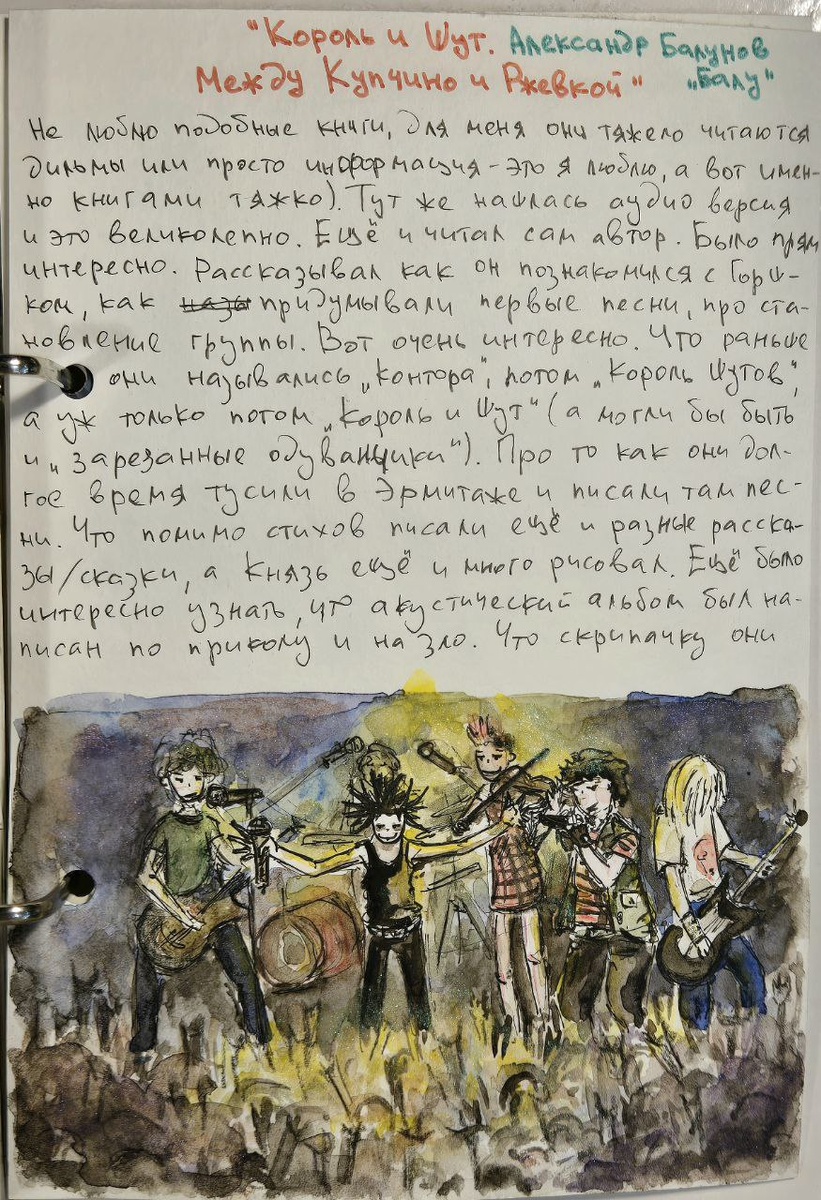 "Король и Шут. Александр Балунов
Между Купчино и Ржевкой" „Балу"
Не люблю подобные книги, для меня они тяжело читаются
Фильмы или просто информация - это я люблю, а вот имен-
но книгами тяжко). Тут же нашлась аудио версия
и это великолепно. Ещё и читал сам автор. Было прям
интересно. Рассказывал как он познакомился с Горш-
ком, как придумывали первые песни, про ста-
новление группы. Вот очень интересно. Что раньше
они назывались „Контора", потом „Король Шутов",
а уж только потом „Король и Шут" (а могли бы быть
и „зарезанные одуванчики"). Про то как они дол-
гое время тусили в Эрмитаже и писали там пес-
ни. Что помимо стихов писали ещё и разные расска-
зы/сказки, а Князь ещё и много рисовал. Ещё было
интересно узнать, что акустический альбом был на-
писан по приколу и на зло. Что скрипачку они